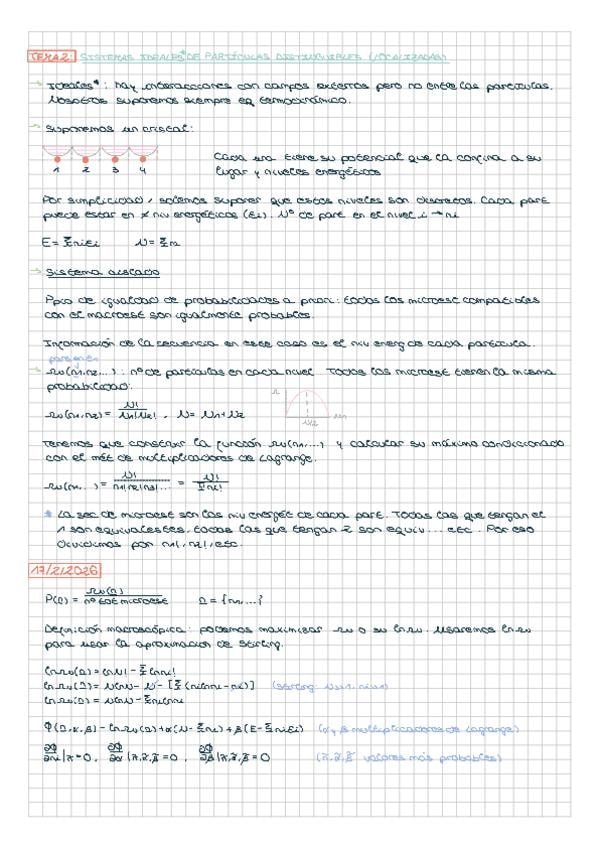 TEMA 2: SISTEMAS IDEALES* DE PARTÍCULAS DISTINGUIBLES (LOCALIZADAS)
→ Ideales*: hay interacciones con campos externos pero no entre las partículas.
Nosotros suponemos siempre eq termodinámico.
→ Suponemos un cristal:
1 2 3 4
Cada una tiene su potencial que la confina a su
lugar y niveles energéticos
Por simplicidad, solemos suponer que estos niveles son discretos. Cada part
puede estar en niv energéticos (Ei). Nº de part en el nivel i → ni
E = Σ niEi N = Σ ni
→ Sistema aislado
Ppio de igualdad de probabilidades a priori: todos los microest compatibles
con el macroest son igualmente probables.
Información de la secuencia en este caso es el niv energ de cada partícula.
part en
→ ω(n1,n2...): nº de partículas en cada nivel Todos los microest tienen la misma
probabilidad:
ω(n1,n2) = N!/n1!n2! , N = n1+n2
N/2
Tenemos que construir la función ω(n1,...) y calcular su máximo condicionado
con el mét de multiplicadores de Lagrange.
ω(n1...) = N!/n1!n2!n3!... = N!/ni!
* La sec de microest son los niv energét de cada part. Todas las que tengan el
1 son equivalentes, todas las que tengan 2 son equiv... etc. Por eso
dividimos por n1!, n2!, etc.
17/2/2026
P(n) = ω(n)/nº tot microest n = {n1...}
Definición macroscópica: podemos maximizar ω o su lnω. Usaremos lnω
para usar la aproximación de Stirling.
lnω(n) = lnN! - Σ lnni!
lnω(n) = NlnN - N - [Σ (nilnni - ni)] (Stirling: N>>1, ni>>1)
lnω(n) = NlnN - Σ nilnni
Φ(n,α,β) = lnω(n) + α(N - Σni) + β(E - Σ niEi) (α y β multiplicadores de Lagrange)
∂Φ/∂ni|ñ = 0, ∂Φ/∂α|ñ,α̃,β̃ = 0, ∂Φ/∂β|ñ,α̃,β̃ = 0 (ñ,α̃,β̃ valores más probables)